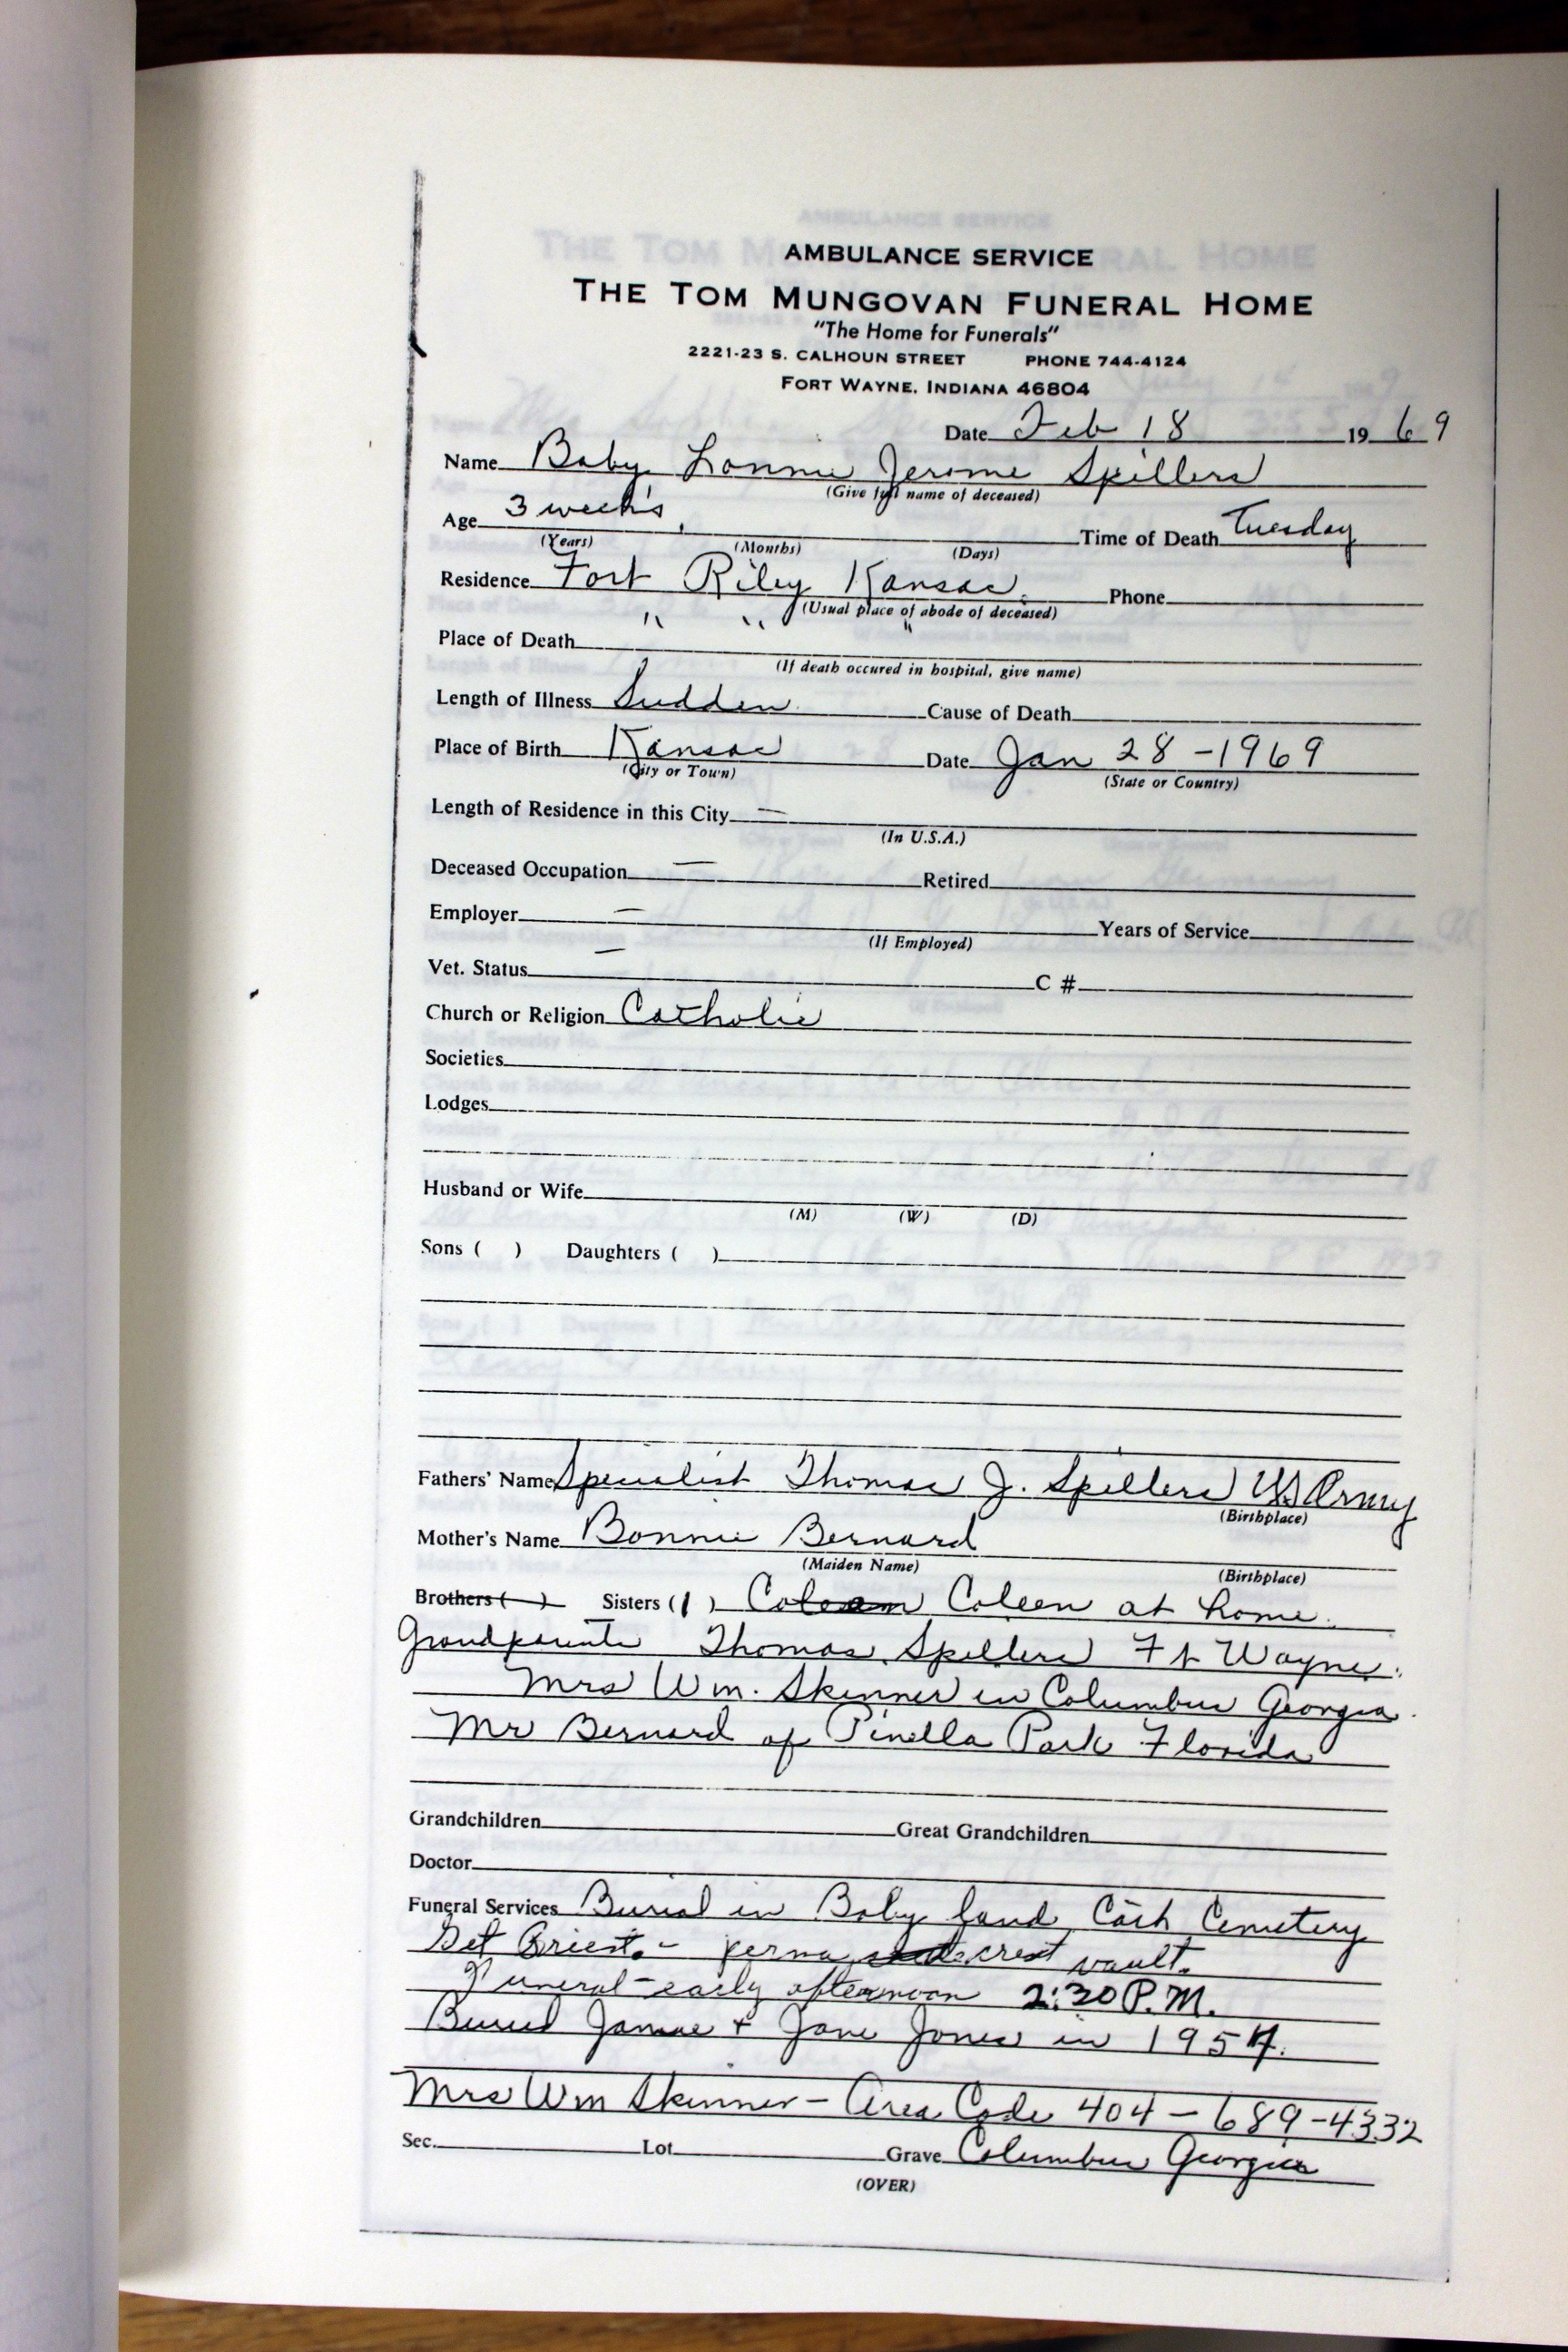 AMBULANCE SERVICE
THE TOM MUNGOVAN FUNERAL HOME
"The Home for Funerals"
2221-23 S. CALHOUN STREET PHONE 744-4124
FORT WAYNE, INDIANA 46804
Date Feb 18 1969
Name Baby Lonnie Jerome Spillers
(Give full name of deceased)
Age 3 weeks Time of Death Tuesday
(Years) (Months) (Days)
Residence Fort Riley Kansas. Phone
(Usual place of abode of deceased)
Place of Death " " "
(If death occured in hospital, give name)
Length of Illness Sudden Cause of Death
Place of Birth Kansas Date Jan 28-1969
(City or Town) (State or Country)
Length of Residence in this City —
(In U.S.A.)
Deceased Occupation — Retired
Employer — Years of Service
(If Employed)
Vet. Status — C #
Church or Religion Catholic
Societies
Lodges
Husband or Wife
(M) (W) (D)
Sons ( ) Daughters ( )
Fathers' Name Specialist Thomas J. Spillers US Army
(Birthplace)
Mother's Name Bonnie Bernard
(Maiden Name) (Birthplace)
Brothers ( ) Sisters (1) Coleen at home.
Grandparents Thomas Spillers Ft Wayne.
Mrs Wm. Skinner in Columbus Georgia.
Mr Bernard of Pinella Park Florida
Grandchildren Great Grandchildren
Doctor
Funeral Services Burial in Baby land Cath Cemetery
Get Priest.- perma crest vault.
Funeral-early afternoon 2:30 P.M.
Buried James + Jane Jones in 1954.
Mrs Wm Skinner - Area Code 404-689-4332
Sec. Lot Grave Columbus Georgia
(OVER)